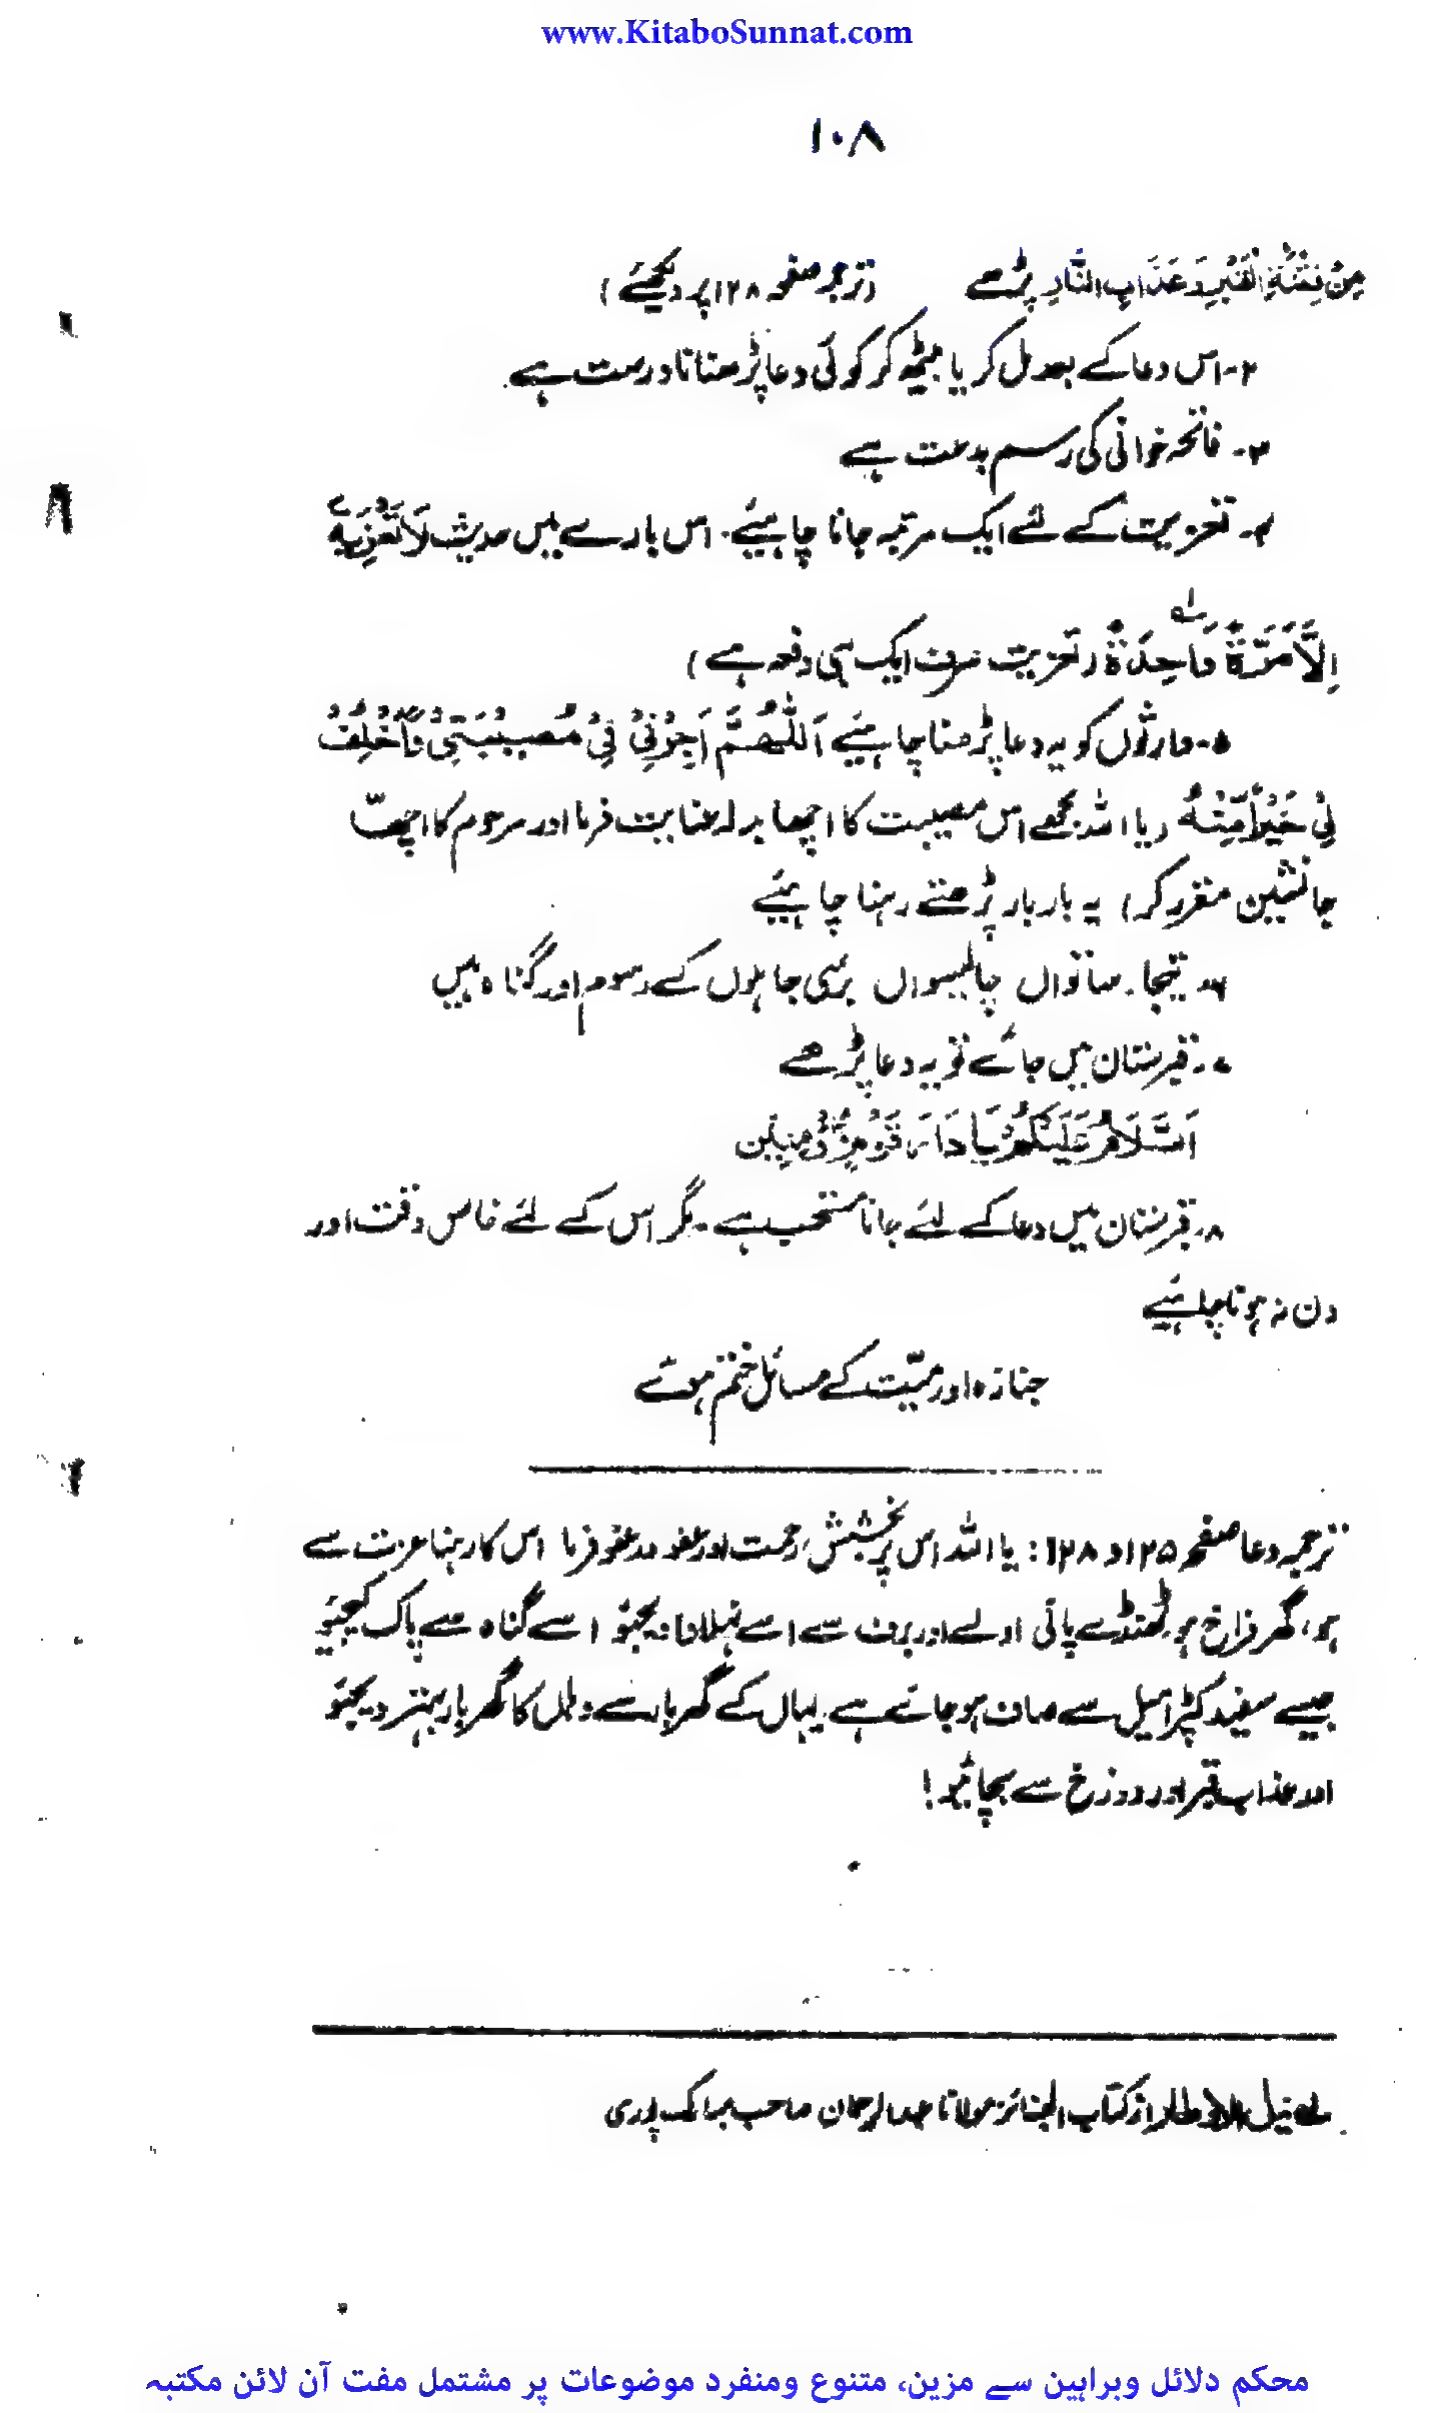 www.KitaboSunnat.com
۱۰۸
مِنْ فِتْنَةِ الْقَبْرِ وَعَذَابِ النَّارِ پڑھے (ترجمہ صفحہ ۱۲۸ پر دیکھئے)
۲۔ اس دعا کے بعد مل کر یا بیٹھ کر کوئی دعا پڑھنا نادرست ہے
۳۔ فاتحہ خوانی کی رسم بدعت ہے
۴۔ تعزیت کے لئے ایک مرتبہ جانا چاہیئے۔ اس بارے میں حدیث لَا تَعْزِيَةَ
اِلَّا مَرَّةً وَاحِدَةً (تعزیت صرف ایک ہی دفعہ ہے)
۵۔ وارثوں کو یہ دعا پڑھنا چاہیئے اَللّٰهُمَّ اَجِرْنِيْ فِيْ مُصِيْبَتِيْ وَاَخْلِفْ
لِيْ خَيْرًا مِّنْهُ (یا اللہ مجھے اس مصیبت کا اچھا بدلہ عنایت فرما اور مرحوم کا اچھّا
جانشین مقرر کر) یہ بار بار پڑھتے رہنا چاہئیے
۶۔ تیجا۔ ساتواں چالیسواں برسی جاہلوں کے رسوم اور گناہ ہیں
۷۔ قبرستان میں جائے تو یہ دعا پڑھے
اَلسَّلَامُ عَلَيْكُمْ يَا دَارَ قَوْمٍ مُّؤْمِنِيْنَ
۸۔ قبرستان میں دعا کے لئے جانا مستحب ہے۔ مگر اس کے لئے خاص وقت اور
دن نہ ہونا چاہئیے
جنازہ اور میّت کے مسائل ختم ہوئے
ترجمہ دعا صفحہ ۱۲۵ و ۱۲۸: یا اللہ اس پر بخشش، رحمت اور عفو در عفو فرما اس کا رہنا عزت سے
ہو، گھر فراخ ہو ٹھنڈے پانی اولے اور برف سے اسے نہلانا دیجئو اسے گناہ سے پاک کیجئیو
جیسے سفید کپڑا میل سے صاف ہو جائے ہے یہاں کے گھر بار سے وہاں کا گھر بار بہتر دیجئو
اور عذاب قبر اور دوزخ سے بچائیو!
لہ نیل الاوطار از کتاب الجنائز مولانا عبدالرحمان صاحب مبارک پوری
محکم دلائل وبراہین سے مزین، متنوع ومنفرد موضوعات پر مشتمل مفت آن لائن مکتبہ